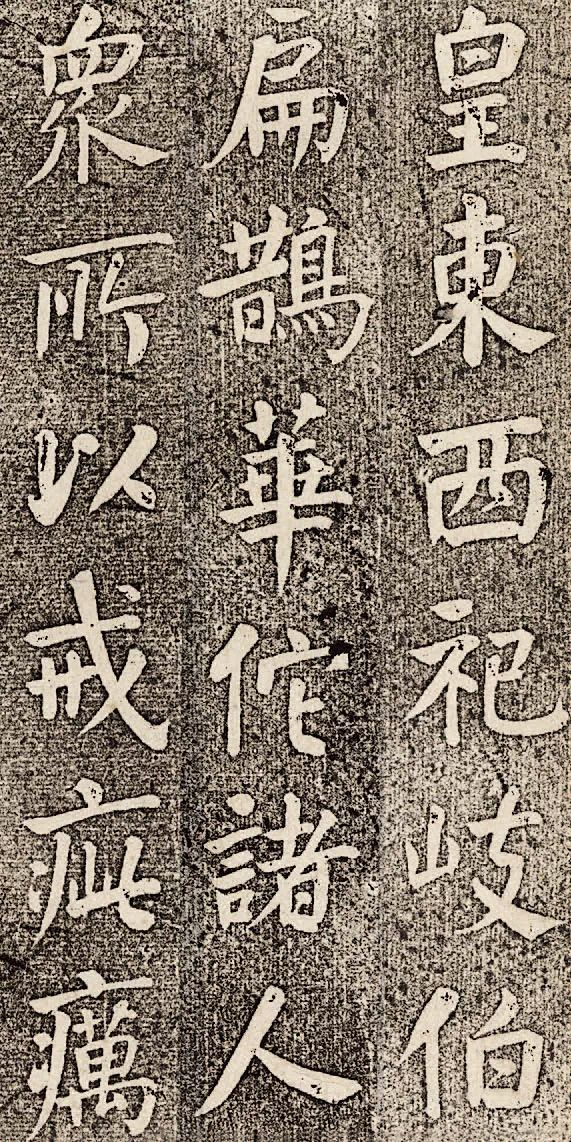 皇東西祀岐伯
扁鵲華佗諸人
衆所以戒疵癘